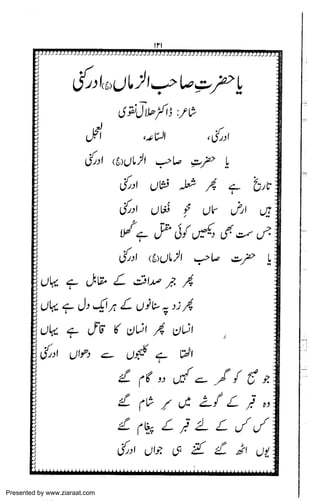 ۱۳۱
یا حضرتِ صاحب الزماں (عج) ادرکنی
شاعر: ڈاکٹر ھلال نقوی
ادرکنی، الساعہ، العجل
یا حضرتِ صاحب الزماں (عج) ادرکنی
تاریخ ہے پھر شعلہ فشاں ادرکنی
ہیں ارض و سماں محوِ فغاں ادرکنی
جس سمت بھی دیکھیں کوئی مقتل ہے کھلا
یا حضرت صاحب الزماں (عج) ادرکنی
پھر جبر صداقت کے مقابل ہے یہاں
پھر زد پہ سنانوں کے ہر ایک دل ہے یہاں
انسان پھر انسان کا قاتل ہے یہاں
اٹھتا ہے کلیجوں سے دھواں ادرکنی
جو صبح کو گھر سے کہیں دو گام گئے
وہ قبر کے گوشے میں سرِ شام گئے
کس کس کے لئے قبر کے پیغام گئے
یوں اٹھ گئے کتنے ہی جواں ادرکنی
Presented by www.ziaraat.com